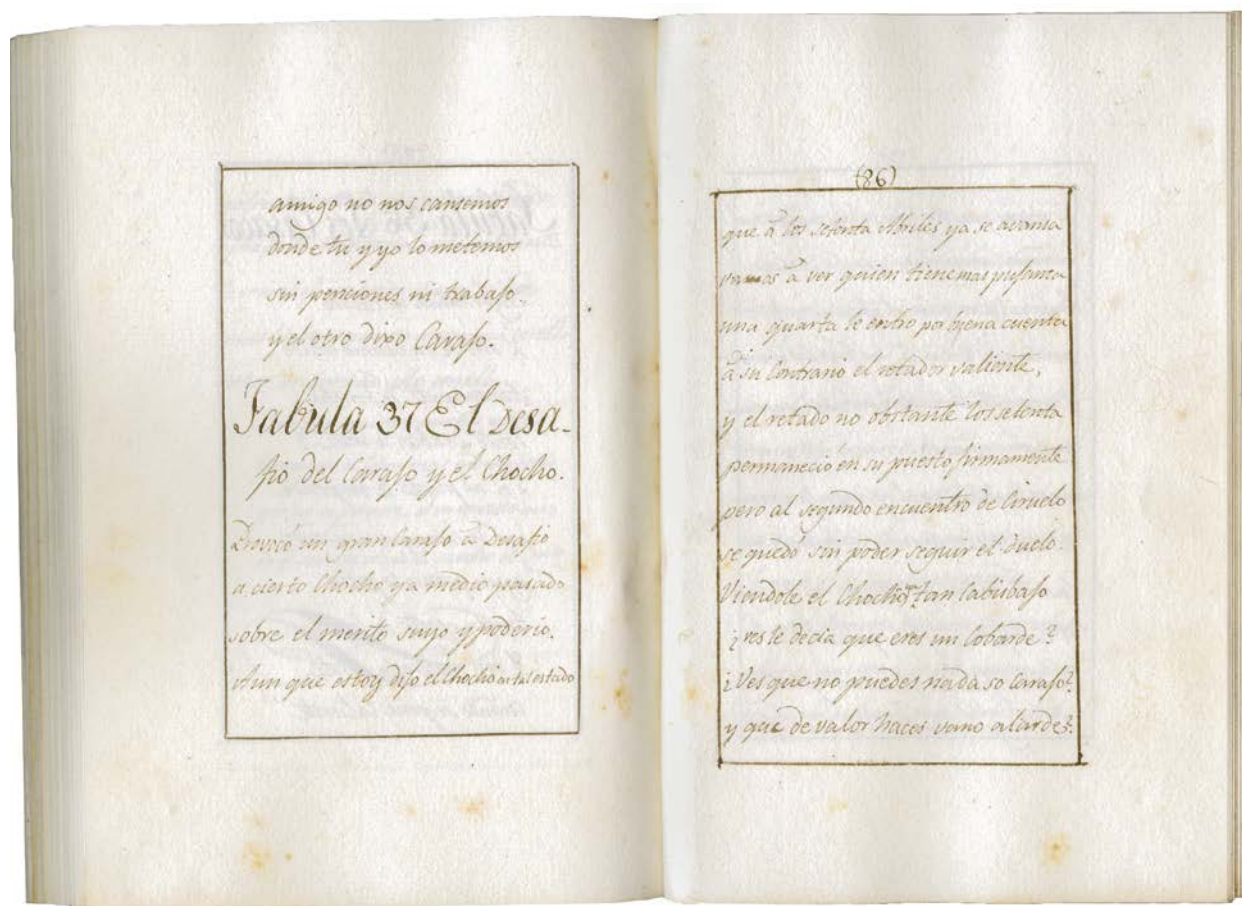 amigo no nos cansemos
donde tu y yo lo metemos
sin penciones ni trabajo.
y el otro dixo Carajo.
Fabula 37 El Desa-
fio del Carajo y el Chocho.
Provocó un gran Carajo a Desafio
a cierto Chocho ya medio pasado
sobre el merito suyo y poderio.
Aun que estoy dijo el Chocho en tal estado
(86)
que á los setenta Abriles ya se avansa
vamos á ver quien tiene mas pujansa
una quarta le entro por buena cuenta
á su Contrario el retador valiente,
y el retado no obstante los setenta
permaneció en su puesto firmamente
pero al segundo encuentro de Ciruelo
se quedó sin poder seguir el duelo.
Viendole el Chocho tan Cabisbajo
¿ves le decia que eres un Cobarde?
¿Ves que no puedes nada so Carajo?
y que de valor haces vano alarde?